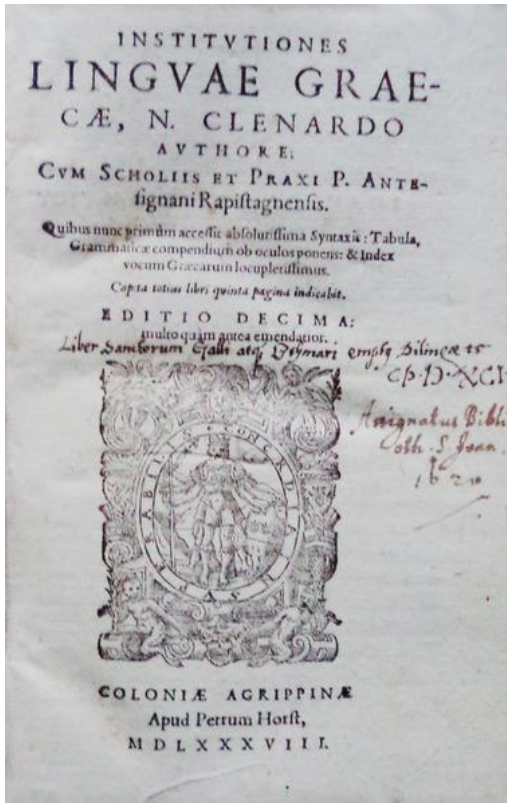 INSTITVTIONES
LINGVAE GRAE-
CÆ, N. CLENARDO
AVTHORE:
CVM SCHOLIIS ET PRAXI P. ANTE-
ſignani Rapiſtagnenſis.
Quibus nunc primùm acceſſit abſolutiſſima Syntaxis: Tabula,
Grammaticæ compendium ob oculos ponens: & Index
vocum Græcarum locupletiſſimus.
Capita totius libri quinta pagina indicabit.
EDITIO DECIMA:
multo quàm antea emendatior.
Liber Sanctorum Galli atq;
XCI
Aſsignatus Bibli
oth. S. Joan.
1620
COLONIÆ AGRIPPINÆ
Apud Petrum Horſt,
MDLXXXVIII.